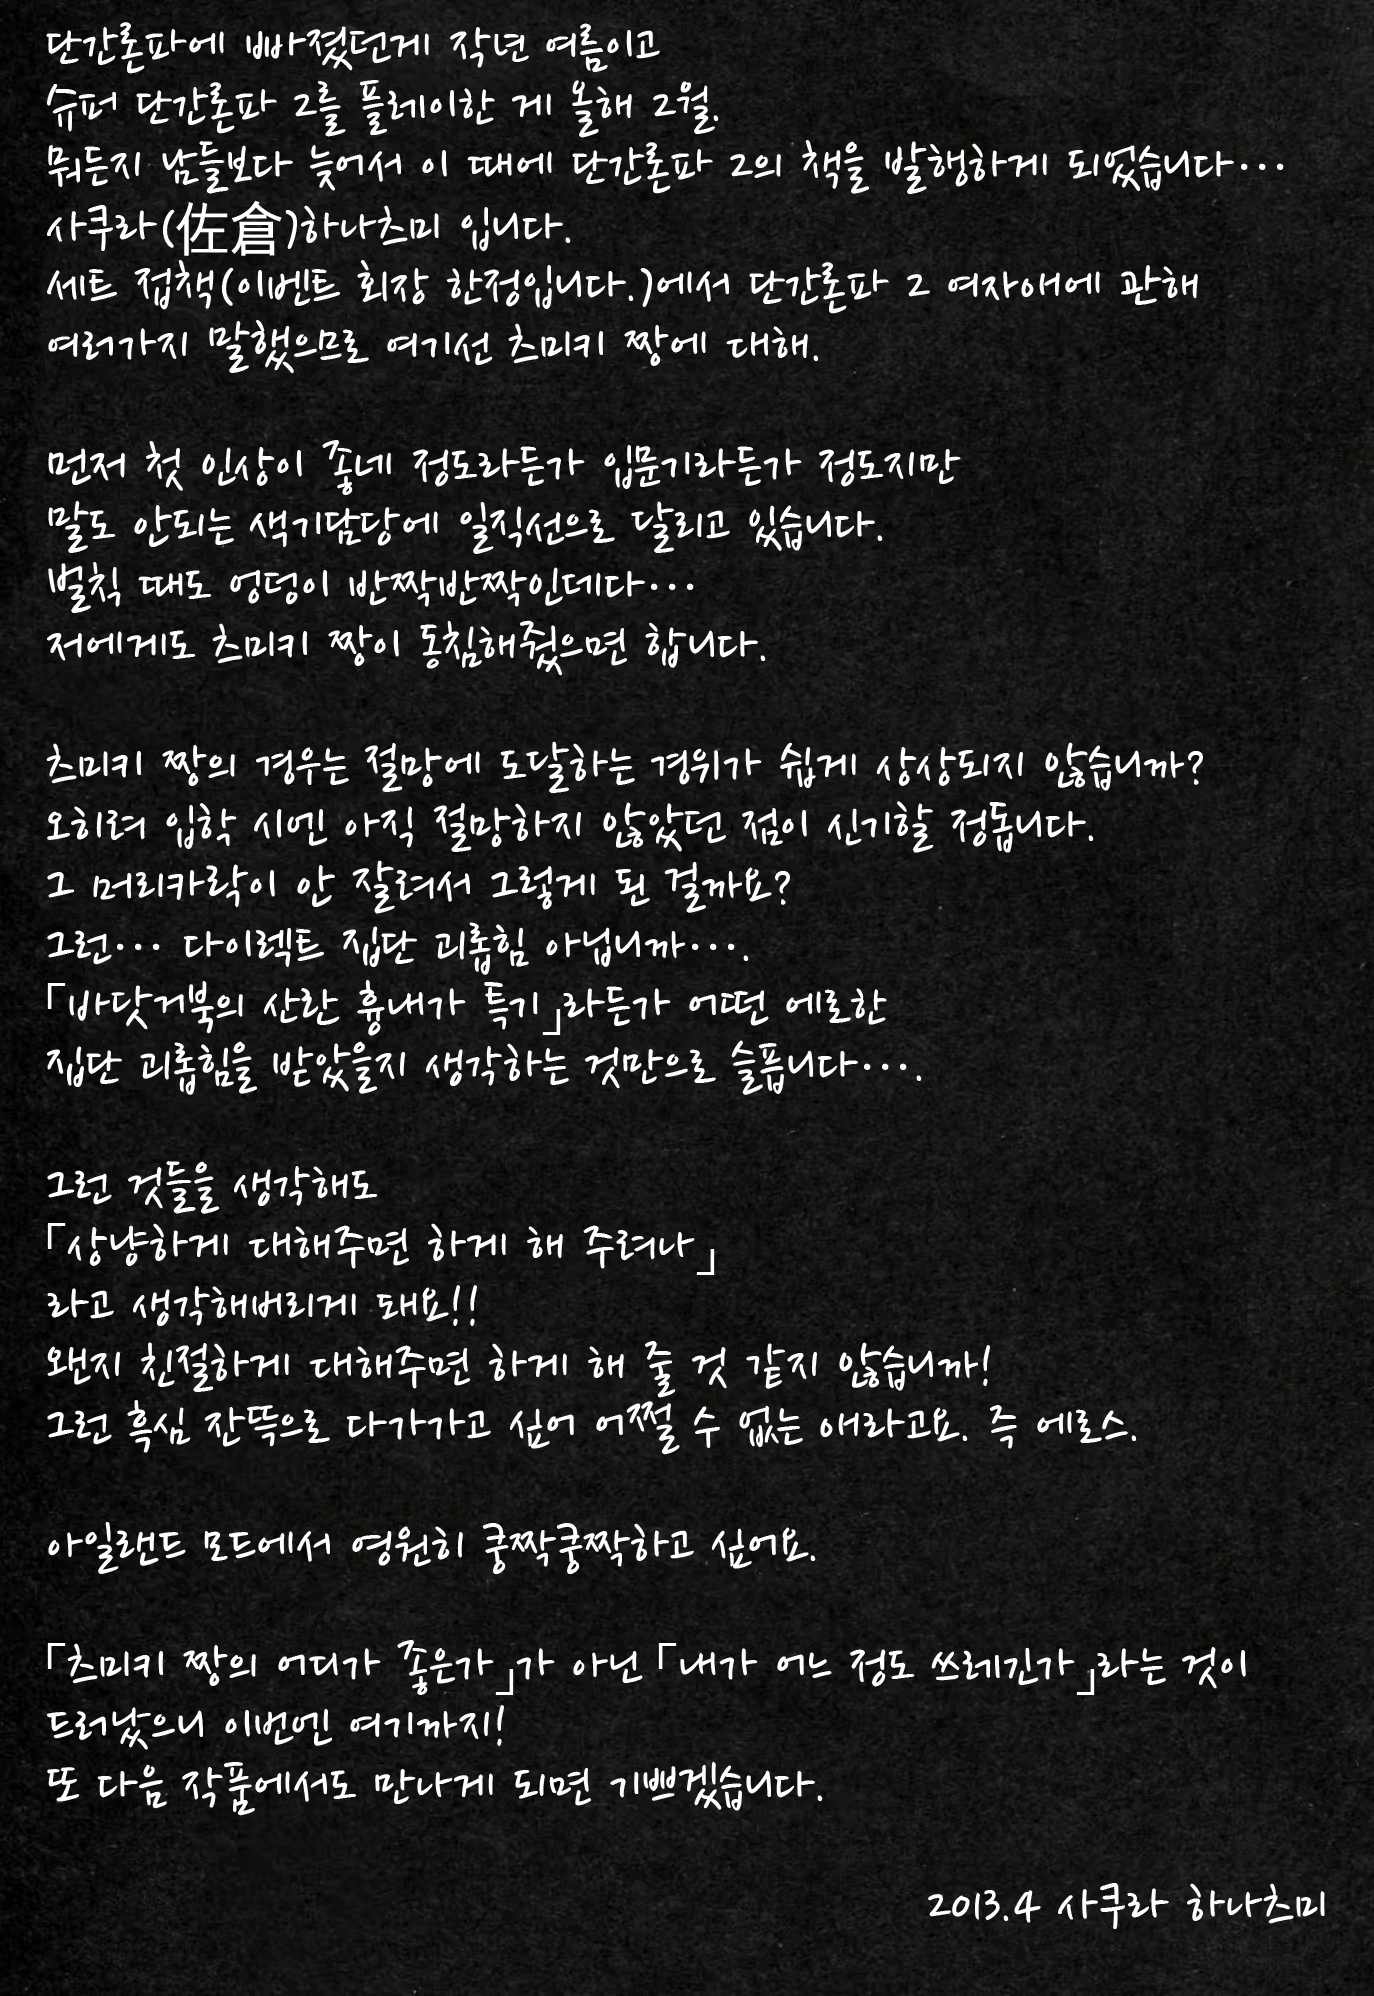 단간론파에 빠졌던게 작년 여름이고
슈퍼 단간론파 2를 플레이한 게 올해 2월.
뭐든지 남들보다 늦어서 이 때에 단간론파 2의 책을 발행하게 되었습니다…
사쿠라(佐倉)하나츠미 입니다.
세트 접책(이벤트 회장 한정입니다.)에서 단간론파 2 여자애에 관해
여러가지 말했으므로 여기선 츠미키 짱에 대해.
먼저 첫 인상이 좋네 정도라든가 입문기라든가 정도지만
말도 안되는 색기담당에 일직선으로 달리고 있습니다.
벌칙 때도 엉덩이 반짝반짝인데다…
저에게도 츠미키 짱이 동침해줬으면 합니다.
츠미키 짱의 경우는 절망에 도달하는 경위가 쉽게 상상되지 않습니까?
오히려 입학 시엔 아직 절망하지 않았던 점이 신기할 정돕니다.
그 머리카락이 안 잘려서 그렇게 된 걸까요?
그런… 다이렉트 집단 괴롭힘 아닙니까….
「바닷거북의 산란 흉내가 특기」라든가 어떤 에로한
집단 괴롭힘을 받았을지 생각하는 것만으로 슬픕니다….
그런 것들을 생각해도
「상냥하게 대해주면 하게 해 주려나」
라고 생각해버리게 돼요!!
왠지 친절하게 대해주면 하게 해 줄 것 같지 않습니까!
그런 흑심 잔뜩으로 다가가고 싶어 어쩔 수 없는 애라고요. 즉 에로스.
아일랜드 모드에서 영원히 쿵짝쿵짝하고 싶어요.
「츠미키 짱의 어디가 좋은가」가 아닌 「내가 어느 정도 쓰레긴가」라는 것이
드러났으니 이번엔 여기까지!
또 다음 작품에서도 만나게 되면 기쁘겠습니다.
2013.4 사쿠라 하나츠미